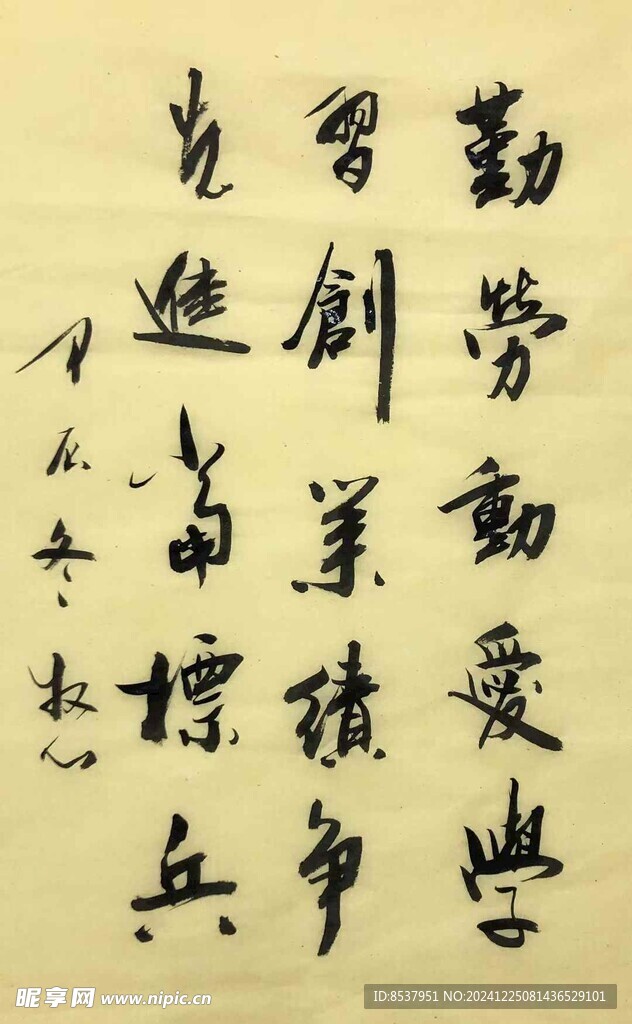 勤勞動愛學
習創業績争
先進當標兵
甲辰冬牧心
昵享网 www.nipic.cn
ID:8537951 NO:20241225081436529101